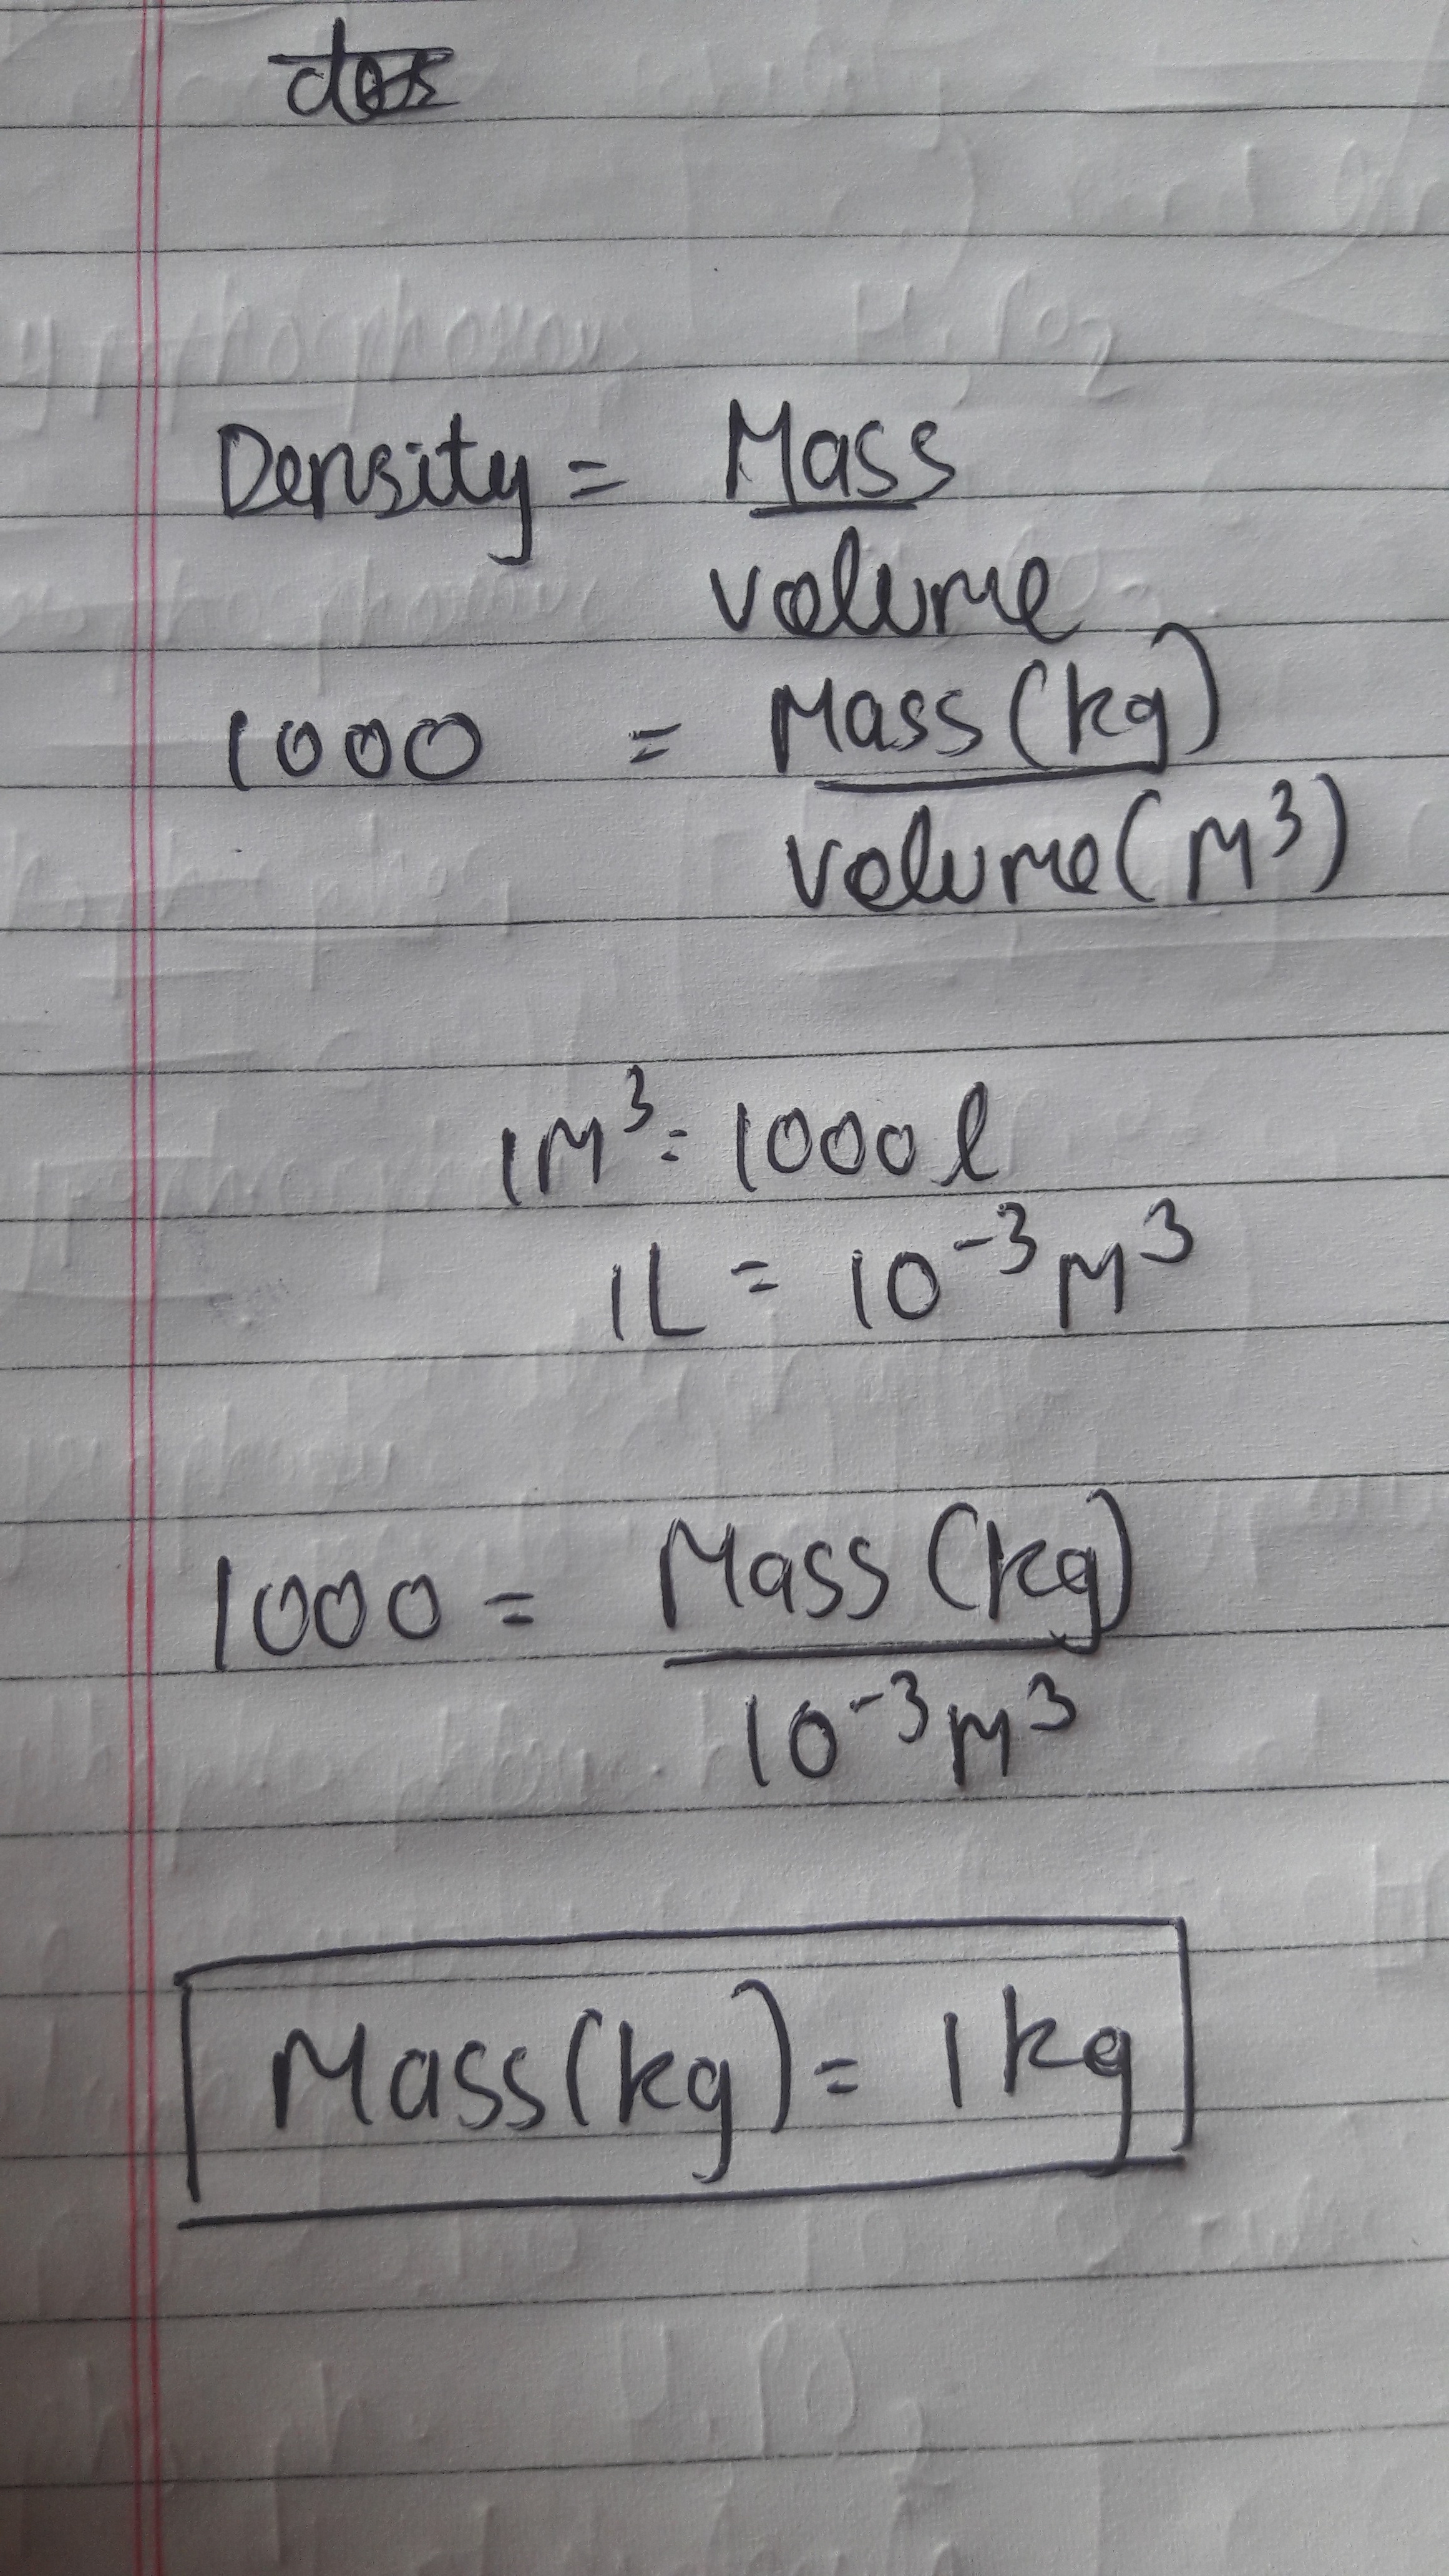 Density = Mass
volume
1000 = Mass (kg)
volume (M³)
1M³ = 1000 l
1L = 10⁻³ M³
1000 = Mass (kg)
10⁻³ M³
Mass (kg) = 1 kg